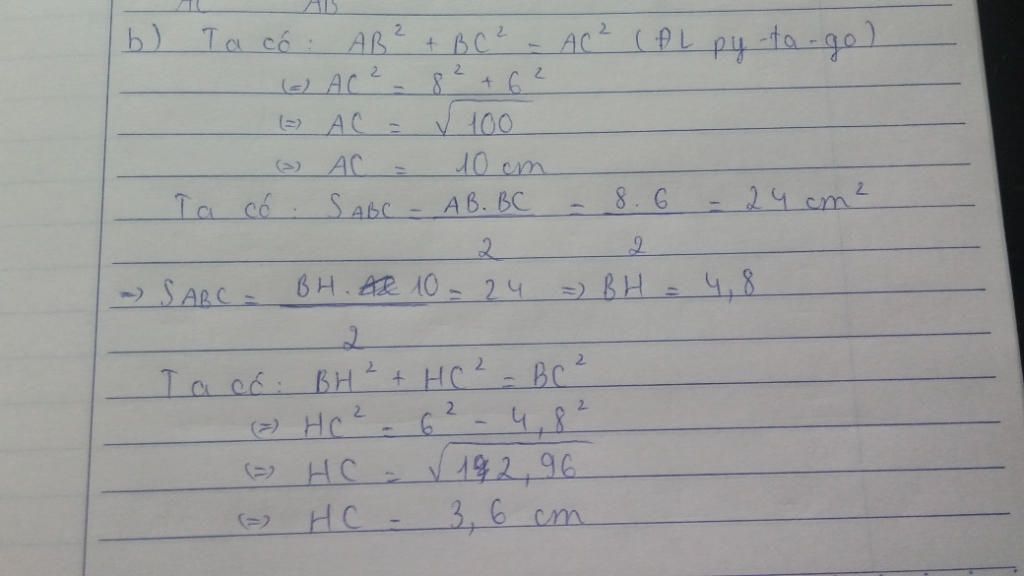 AC AB
b) Ta có: AB² + BC² = AC² (ĐL py-ta-go)
(=) AC² = 8² + 6²
(=) AC = √100
(=) AC = 10 cm
Ta có: SABC = AB.BC / 2 = 8.6 / 2 = 24 cm²
=) SABC = BH. 10 / 2 = 24 =) BH = 4,8
Ta có: BH² + HC² = BC²
(=) HC² = 6² - 4,8²
(=) HC = √12,96
(=) HC = 3,6 cm